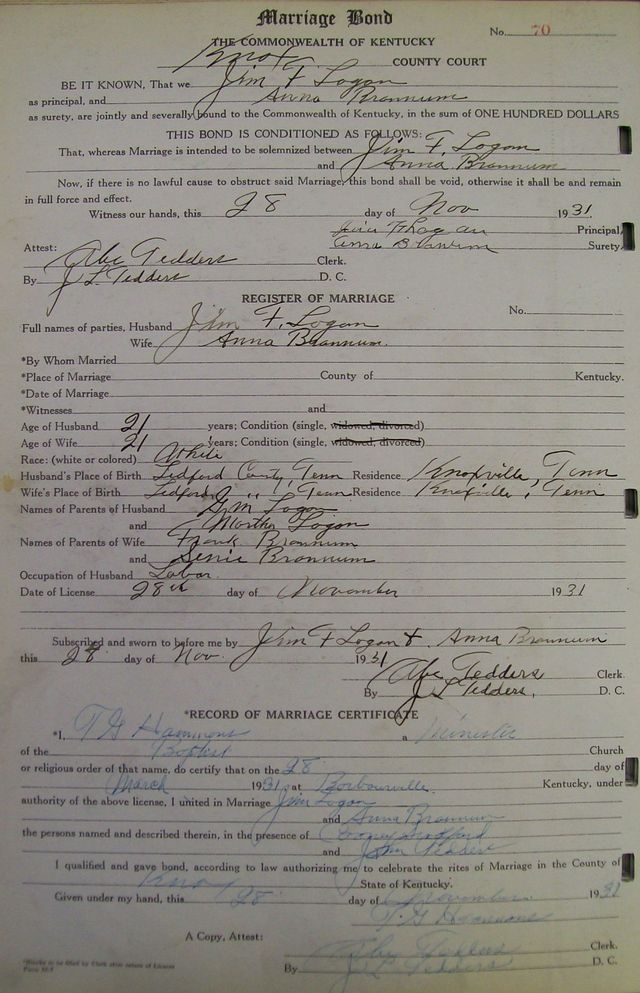 Marriage Bond
No. 70
THE COMMONWEALTH OF KENTUCKY
Knox COUNTY COURT
BE IT KNOWN, That we Jim F Logan
as principal, and Anna Brannum
as surety, are jointly and severally bound to the Commonwealth of Kentucky, in the sum of ONE HUNDRED DOLLARS
THIS BOND IS CONDITIONED AS FOLLOWS:
That, whereas Marriage is intended to be solemnized between Jim F. Logan
and Anna Brannum
Now, if there is no lawful cause to obstruct said Marriage, this bond shall be void, otherwise it shall be and remain
in full force and effect.
Witness our hands, this 28 day of Nov 1931
Jim F Logan Principal,
Anna Brannum Surety.
Attest: Abe Tedders Clerk.
By J L Tedders D. C.
REGISTER OF MARRIAGE
No.
Full names of parties, Husband Jim F. Logan
Wife Anna Brannum.
*By Whom Married
*Place of Marriage County of Kentucky.
*Date of Marriage
*Witnesses and
Age of Husband 21 years; Condition (single, widowed, divorced)
Age of Wife 21 years; Condition (single, widowed, divorced)
Race: (white or colored) White
Husband's Place of Birth Ledford County, Tenn Residence Knoxville, Tenn
Wife's Place of Birth Ledford " , Tenn Residence Knoxville, Tenn
Names of Parents of Husband Logan
and Martha Logan
Names of Parents of Wife Frank Brannum
and Senie Brannum
Occupation of Husband Labor
Date of License 28th day of November 1931
Subscribed and sworn to before me by Jim F Logan & Anna Brannum
this 28 day of Nov. 1931
Abe Tedders Clerk.
By J L Tedders, D. C.
*RECORD OF MARRIAGE CERTIFICATE
*I, T G Hammons a Minister
of the Baptist Church
or religious order of that name, do certify that on the 28 day of
March 1931 at Barbourville Kentucky, under
authority of the above license, I united in Marriage Jim Logan
and Anna Brannum
the persons named and described therein, in the presence of
and John Tedders
I qualified and gave bond, according to law authorizing me to celebrate the rites of Marriage in the County of
Knox State of Kentucky.
Given under my hand, this 28 day of November 1931
T G Hammons
A Copy, Attest: Abe Tedders Clerk.
By J L Tedders D. C.